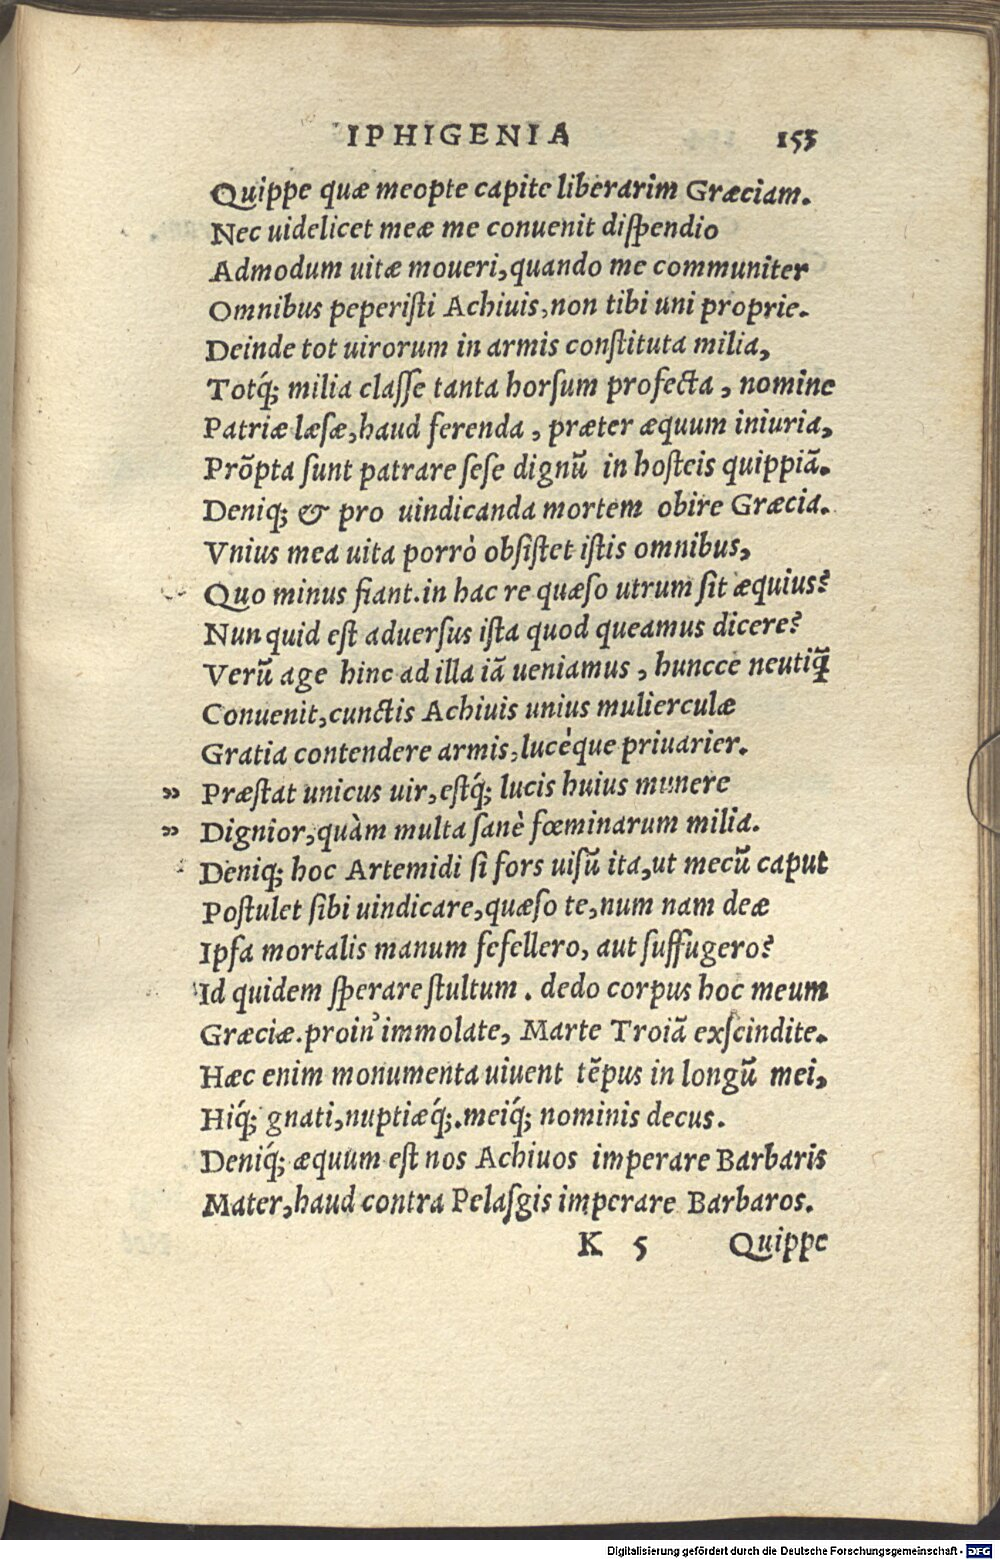 IPHIGENIA 153
Quippe quæ meopte capite liberarim Græciam.
Nec uidelicet meæ me conuenit dispendio
Admodum uitæ moueri, quando me communiter
Omnibus peperisti Achiuis, non tibi uni proprie.
Deinde tot uirorum in armis constituta milia,
Totq́; milia classe tanta horsum profecta, nomine
Patriæ læsæ, haud ferenda, præter æquum iniuria,
Prõpta sunt patrare sese dignũ in hosteis quippiã.
Deniq; & pro uindicanda mortem obire Græcia.
Vnius mea uita porrò obsistet istis omnibus,
Quo minus fiant. in hac re quæso utrum sit æquius?
Nunquid est aduersus ista quod queamus dicere?
Verũ age hinc ad illa iã ueniamus, huncce neutiq̃
Conuenit, cunctis Achiuis unius mulierculæ
Gratia contendere armis, lucèque priuarier.
„ Præstat unicus uir, estq́; lucis huius munere
„ Dignior, quàm multa sanè fœminarum milia.
Deniq; hoc Artemidi si fors uisũ ita, ut mecũ caput
Postulet sibi uindicare, quæso te, num nam deæ
Ipsa mortalis manum fefellero, aut suffugero?
Id quidem sperare stultum. dedo corpus hoc meum
Græciæ. proin' immolate, Marte Troiã exscindite.
Hæc enim monumenta uiuent tẽpus in longũ mei,
Hiq́; gnati, nuptiæq́;. meiq́; nominis decus.
Deniq́; æquum est nos Achiuos imperare Barbaris
Mater, haud contra Pelasgis imperare Barbaros.
K 5 Quippe
Digitalisierung gefördert durch die Deutsche Forschungsgemeinschaft - DFG